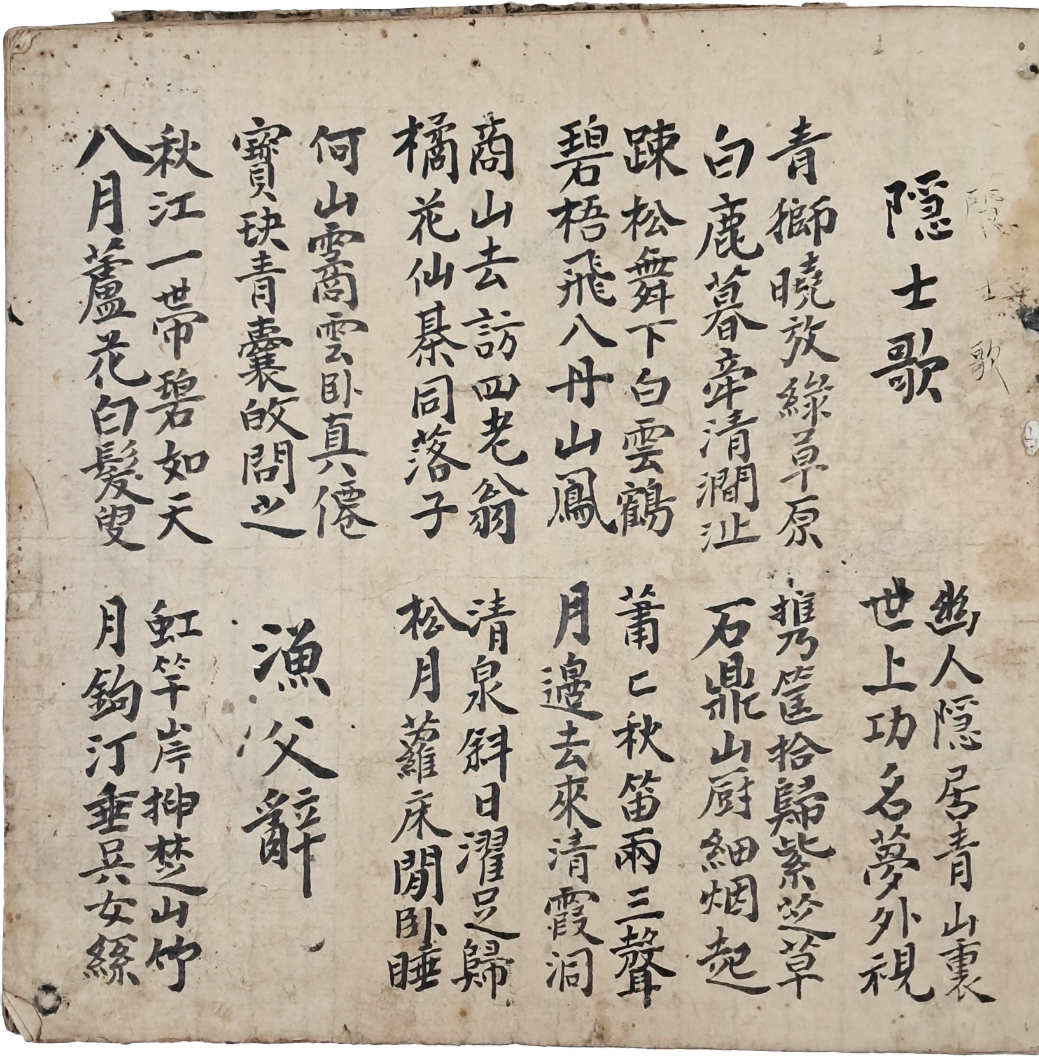 隱士歌
隐士歌
幽人隐居青山裏
世上功名夢外視
青獅曉放綠草原
白鹿暮牽清澗沚
携筐拾歸紫芝草
石鼎山厨細烟起
踈松舞下白雲鶴
碧梧飛八丹山鳳
蕭〻秋笛兩三聲
月邊去來清霞洞
商山去訪四老翁
橘花仙棊同落子
清泉斜日濯足歸
松月蘿床閒卧睡
何山霱雲卧真僊
寶玦青囊敀問之
漁父辭
秋江一帶碧如天
八月蘆花白髮叟
虹竿岸抻楚山竹
月鉤汀垂吳女絲